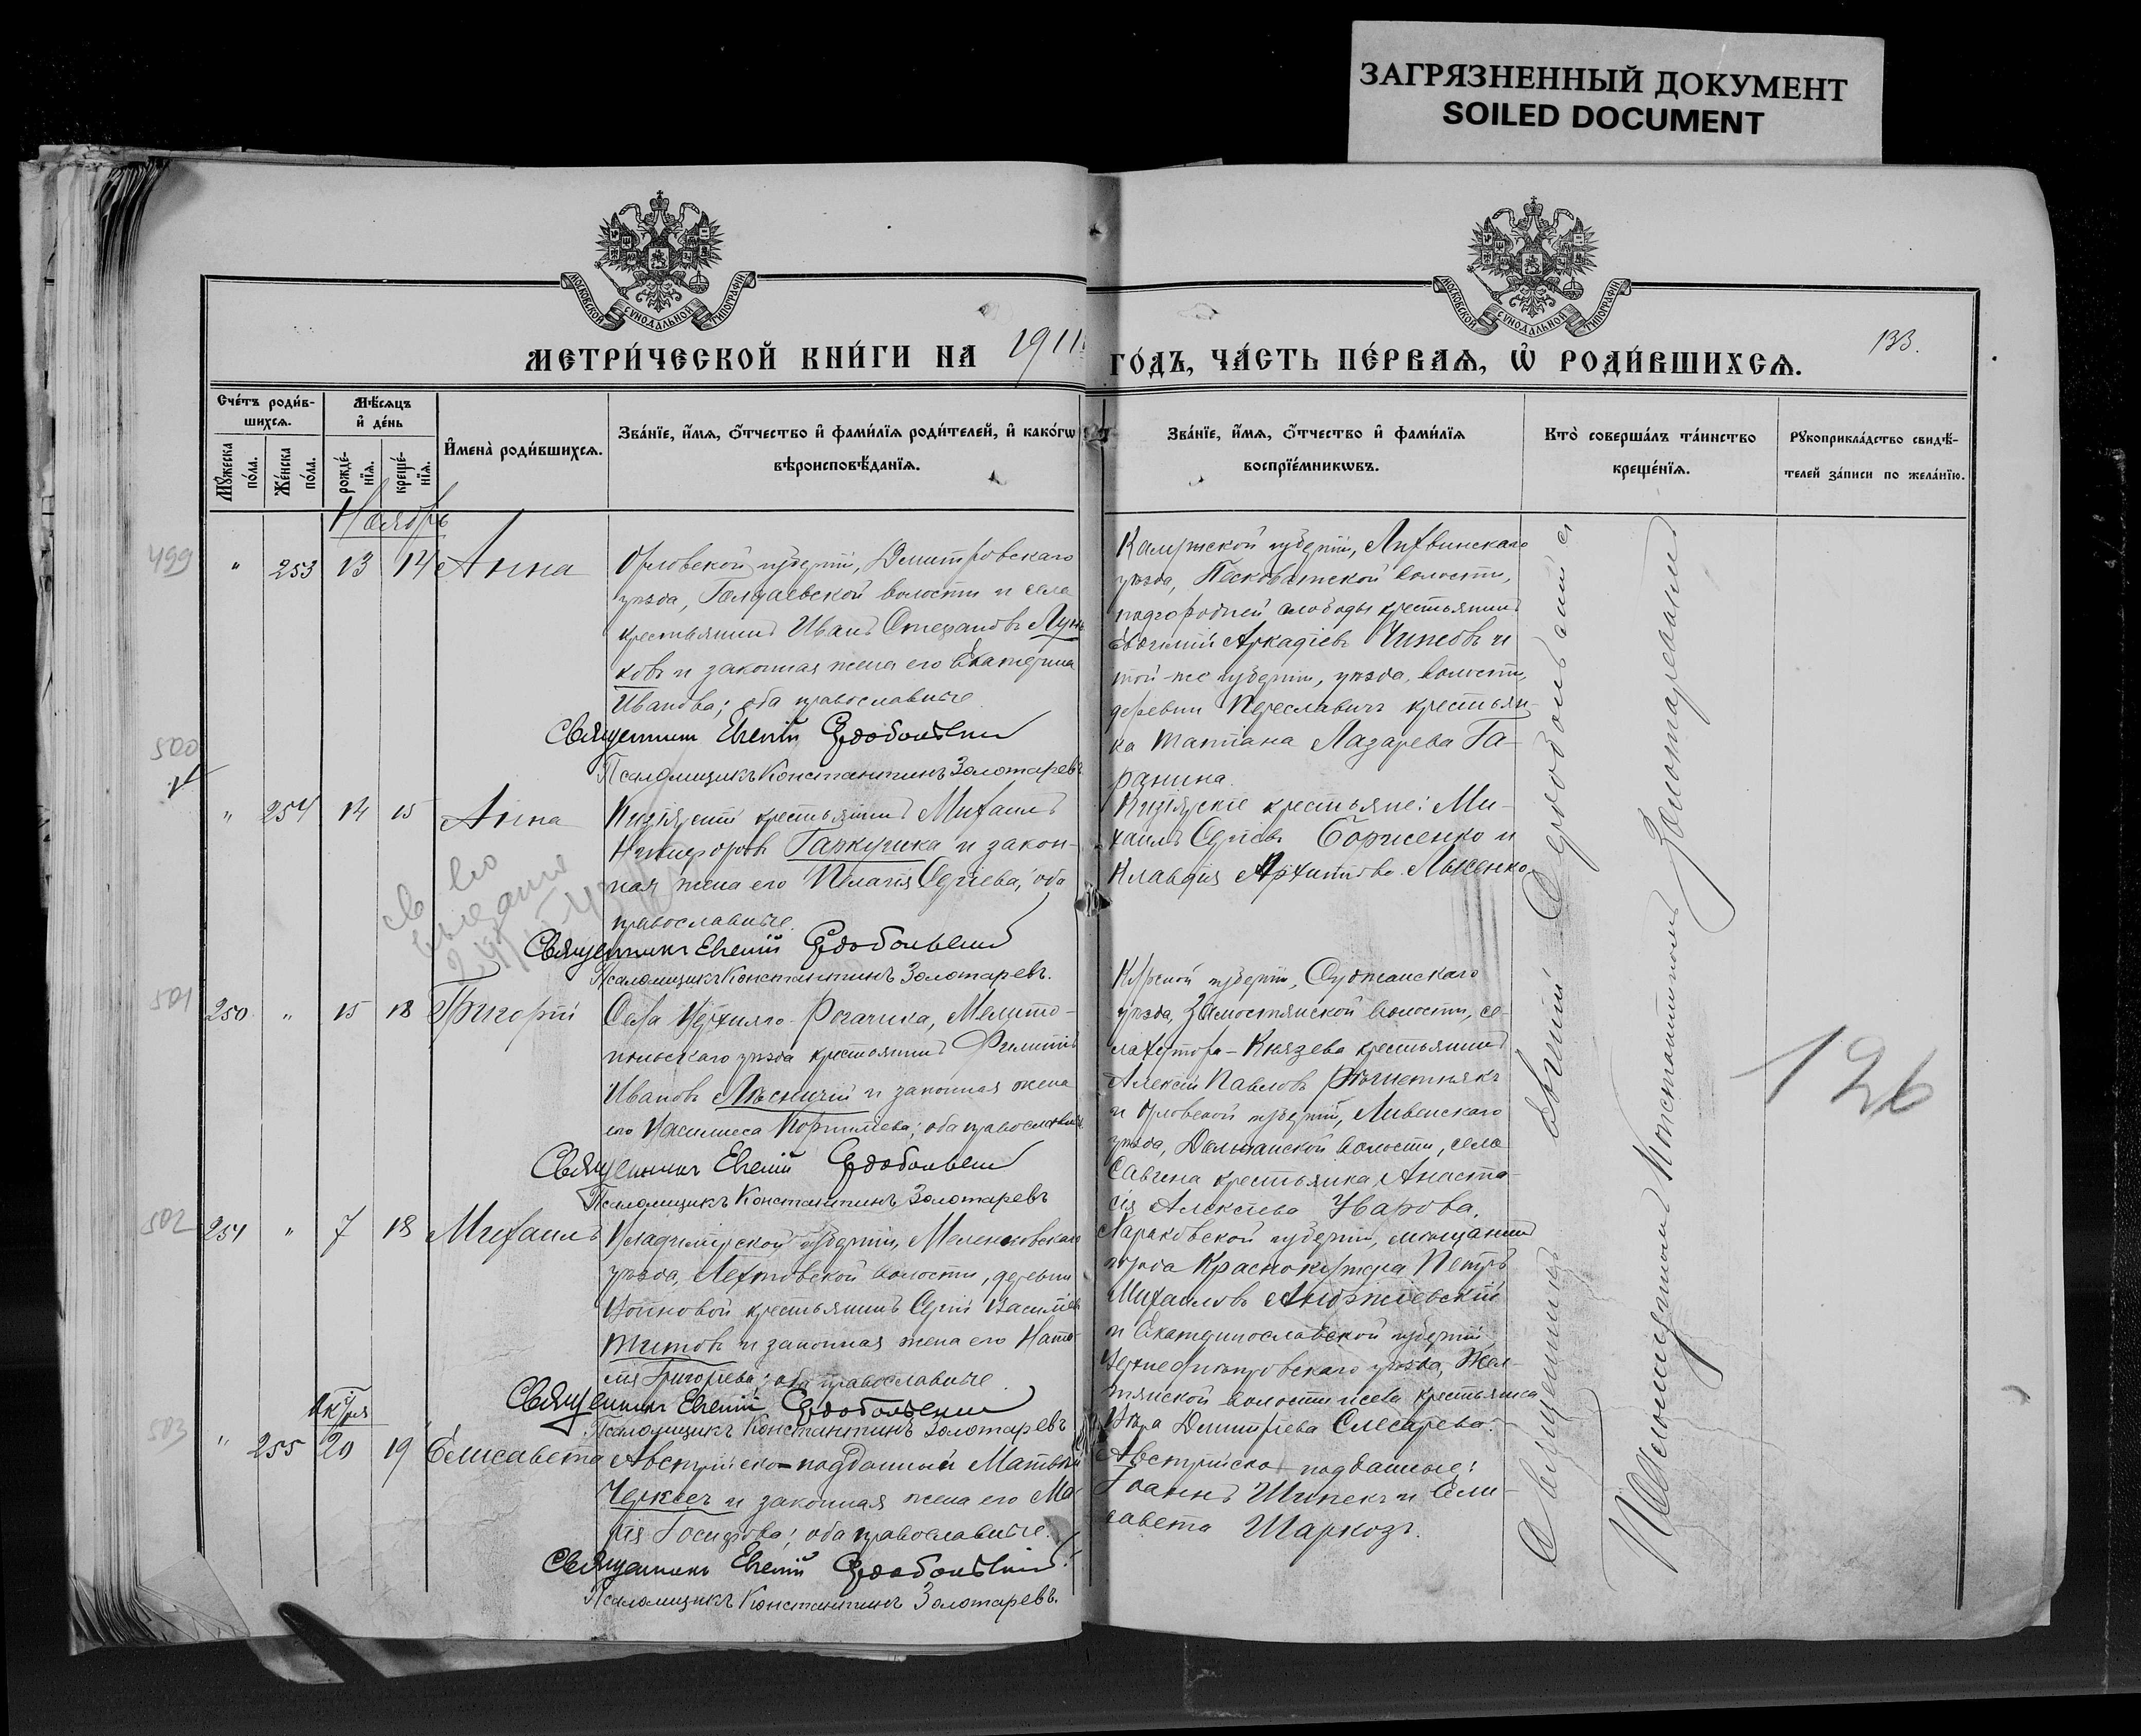 ЗАГРЯЗНЕННЫЙ ДОКУМЕНТ
SOILED DOCUMENT
МОСКОВСКОЙ СѴНОДАЛЬНОЙ ТИПОГРАФІИ
МОСКОВСКОЙ СѴНОДАЛЬНОЙ ТИПОГРАФІИ
МЕТРИ́ЧЕСКОЙ КНИ́ГИ НА 1911
ГО́ДЪ, ЧА́СТЬ ПЕ́РВАѦ, Ѡ҆ РОДИ́ВШИХСѦ.
133.
Сче́тъ роди́в-
шихсѧ.
Мꙋ́жеска по́ла.
Же́нска по́ла.
Мѣ́сѧцъ
и҆ де́нь
рожде́-
нїѧ.
креще́-
нїѧ.
И҆мена̀ роди́вшихсѧ.
Зва́нїе, и҆́мѧ, ѻ҆́тчество и҆ фами́лїѧ роди́телей, и҆ како́гѡ
вѣроисповѣ́данїѧ.
Зва́нїе, и҆́мѧ, ѻ҆́тчество и҆ фами́лїѧ
воспрїе́мникѡвъ.
Кто̀ соверша́лъ та́инство
креще́нїѧ.
Рꙋкоприкла́дство свидѣ́-
телей за́писи по жела́нїю.
Ноябрь
499 " 253 13 14 Анна
Орловской губерніи, Дмитровскаго
уѣзда, волости и села
крестьянинъ Иванъ Стефановъ Лун
ковъ и законная жена его Екатерина
Иванова; оба православные.
Священник Евгеній Сердобольскій
Псаломщикъ Константинъ Золотаревъ
Калужской губерніи, Лихвинскаго
уѣзда, Песковатской волости,
подгородней слободы крестьянинъ
Евѳимій Аркадіевъ и
той-же губерніи, уѣзда, волости,
деревни Переславичъ крестьян-
ка Татіана Лазарева Га-
ранина.
500
" 254 14 15 Анна
крестьянинъ Михаилъ
Никифоровъ Гаркушка и закон-
ная жена его Пелагія Сергіева; оба
православные.
Священникъ Евгеній Сердобольскій
Псаломщикъ Константинъ Золотаревъ.
крестьяне: Ми-
хаилъ Сергіевъ Борисенко и
Клавдія Архиппова Лысенко
501 250 " 15 18 Григорій
Села Рогачика, Мелито-
польскаго уѣзда крестьянинъ Филиппъ
Ивановъ Лѣсничій и законная жена
его Василисса Корнилиева; оба православные.
Священникъ Евгеній Сердобольскій
Псаломщикъ Константинъ Золотаревъ
Курской губерніи, Суджанскаго
уѣзда, Замостянской волости, се-
ла Князева крестьянинъ
Алексій Павловъ
и Орловской губерніи, Ливенскаго
уѣзда, волости, села
крестьянка Анаста-
сія Алексіева Уварова.
502 251 " 7 18 Михаилъ
Владимірской губерніи, Меленковскаго
уѣзда, Ляховской волости, деревни
крестьянинъ Сергій Василіевъ
Титовъ и законная жена его Ната-
лія Григоріева; оба православные
Священникъ Евгеній Сердобольскій
Псаломщикъ Константинъ Золотаревъ
Харьковской губерніи, мѣщанинъ
города Краснокутска Петръ
Михаиловъ
и Екатеринославской губерніи
Верхнеднѣпровскаго уѣзда, Жел-
тянской волости и села крестьянка
Вѣра Димитріева Слесарева.
503 " 255 20 19 Елисавета
Австрійско-подданный Матѳей
и законная жена его Ма-
рія Іосифова; оба православные.
Священникъ Евгеній Сердобольскій
Псаломщикъ Константинъ Золотаревъ.
Австрійско-подданные:
Іоаннъ Шипекъ и Ели-
савета Шаркозъ.
Священникъ Евгеній Сердобольскій
Псаломщикъ Константинъ Золотаревъ
126